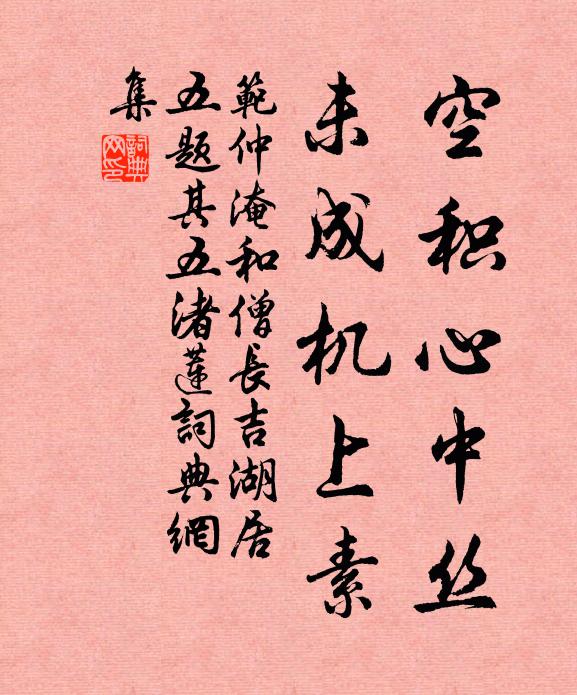 空积心中丝
未成机上素
範仲淹和僧長吉湖居
五题其五渚蓮詞典網
集
詞典网印